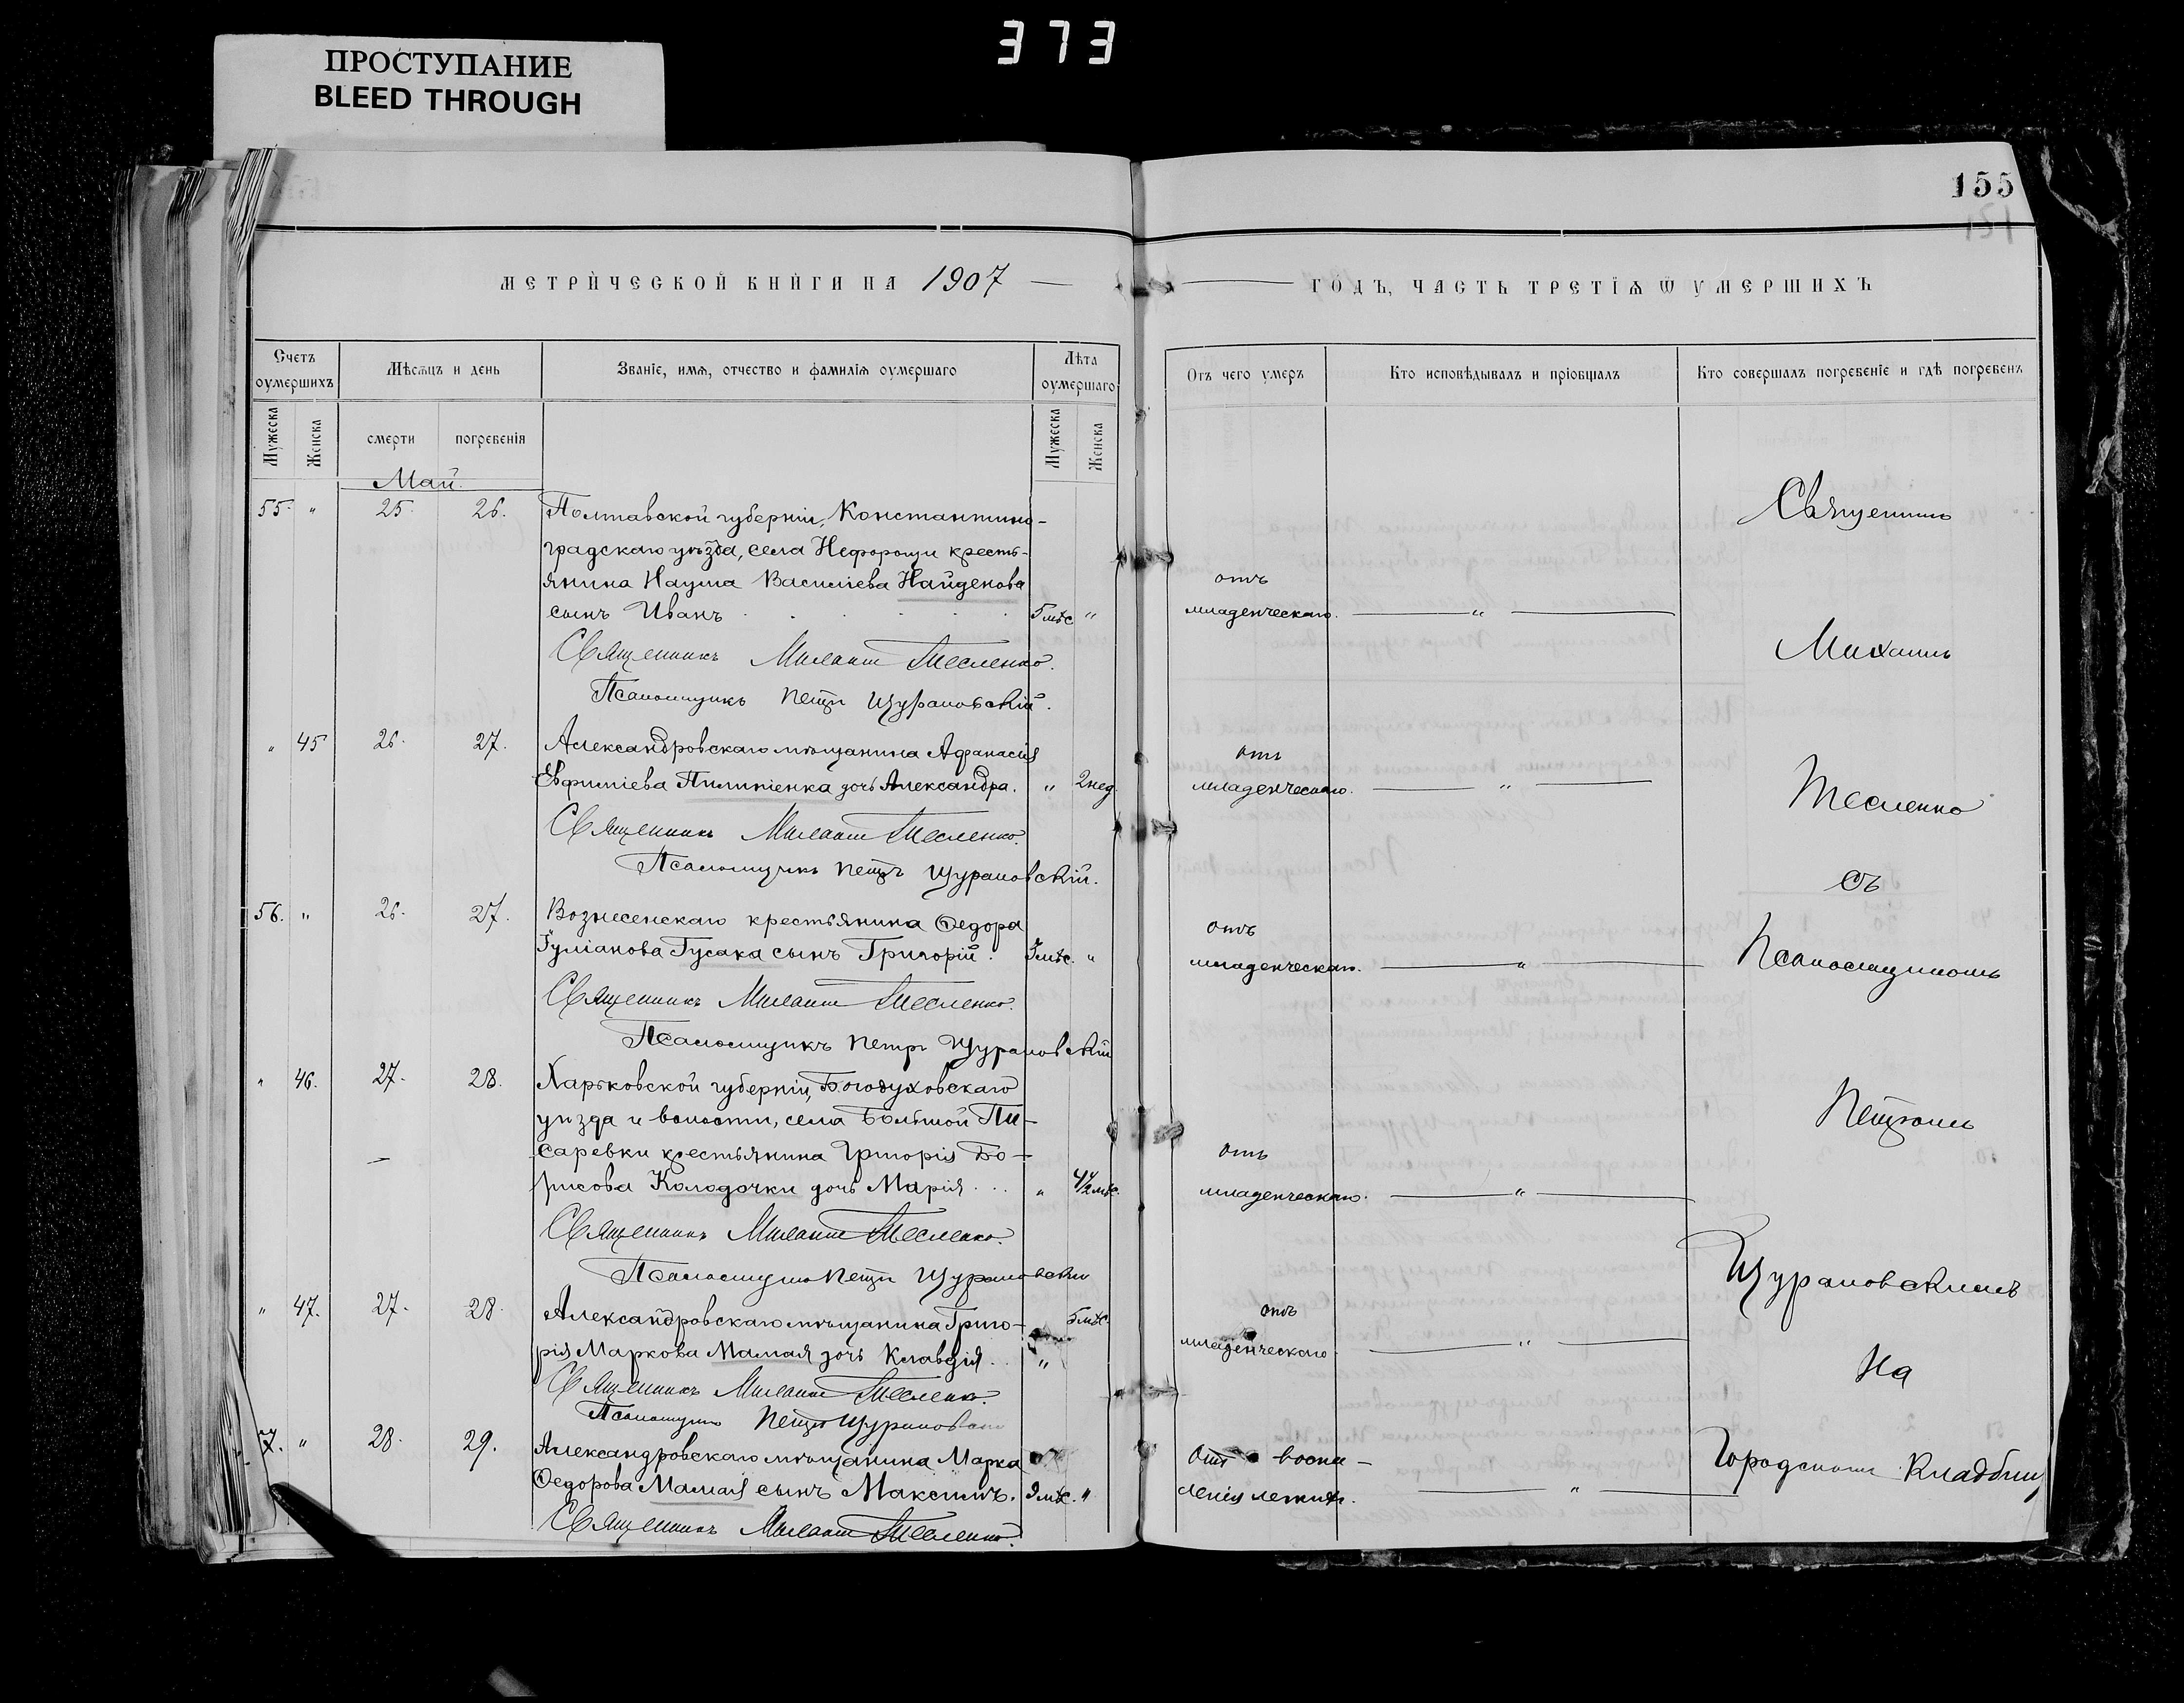 373
ПРОСТУПАНИЕ
BLEED THROUGH
155
МЕТРИЧЕСКОЙ КНИГИ НА 1907
ГОДЪ, ЧАСТЬ ТРЕТІѦ Ѿ УМЕРШИХЪ
Счетъ оумершихъ
Мѣсѧцъ и день
Званіе, имѧ, отчество и фамиліѧ оумершаго
Лѣта оумершаго
Отъ чего умеръ
Кто исповѣдывалъ и пріобщалъ
Кто совершалъ погребеніе и гдѣ погребенъ
Мужеска
Женска
смерти
погребеніѧ
Мужеска
Женска
Май.
Священникъ
55. " 25. 26. Полтавской губерніи, Константино-
градскаго уѣзда, села Нефорощи кресть-
янина Наума Василіева Найденова
отъ
сынъ Иванъ 5 мѣс "
младенческаго. "
Священникъ Михаилъ Тесленко.
Михаилъ
Псаломщикъ Петръ Щурановскій.
" 45 26. 27. Александровскаго мѣщанина Афанасія
отъ
Евфиміева Пилипенка дочь Александра. " 2 нед.
младенческаго. "
Тесленко
Священникъ Михаилъ Тесленко.
Псаломщикъ Петръ Щурановскій.
Съ
56. " 26. 27. Вознесенскаго крестьянина Ѳедора
отъ
Гусака сынъ Григорій. мѣс. "
младенческаго. "
Псаломщикомъ
Священникъ Михаилъ Тесленко.
Псаломщикъ Петръ Щурановскій
" 46. 27. 28. Харьковской губерніи, Богодуховскаго
уѣзда и волости, села Большой Пи-
Петромъ
саревки крестьянина Григорія Бо-
отъ
рисова Колодочки дочь Марія " 4½ мѣс.
младенческаго. "
Священникъ Михаилъ Тесленко.
Псаломщикъ Петръ Щурановскій
Щурановскимъ
" 47. 27. 28. Александровскаго мѣщанина Григо- 5 мѣс.
отъ
рія Маркова Мамая дочь Клавдія. "
младенческаго "
На
Священникъ Михаилъ Тесленко.
Псаломщикъ Петръ Щурановскій
7. " 28. 29. Александровскаго мѣщанина Марка
отъ воспа-
Городскомъ Кладбищ
Ѳедорова Мамая сынъ Максимъ. 9 мѣс. "
ленія легкихъ. "
Священникъ Михаилъ Тесленко.